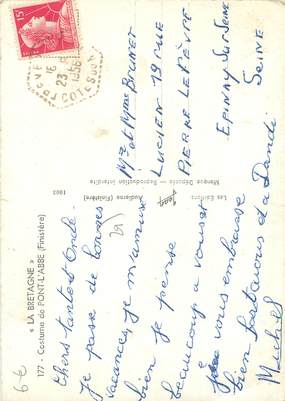 « LA BRETAGNE »
177 - Costume de PONT-L'ABBE (Finistère)
Chers tante et Oncle.
je passe de bonnes
vacances, je m'amuse
bien je pense
beaucoup a vous et
je vous embrasse
bien fort a vous et a Dandi
Michel
Les Editions Jean Audierne (Finistère)
Marque Déposée - Reproduction Interdite
1003
Mr et Mme BRUNET
LUCIEN 19 rue
PIERRE LEFÈVRE
EPINAY SUR SEINE
SEINE
15F
16
23
1956
COTES DU N
6€